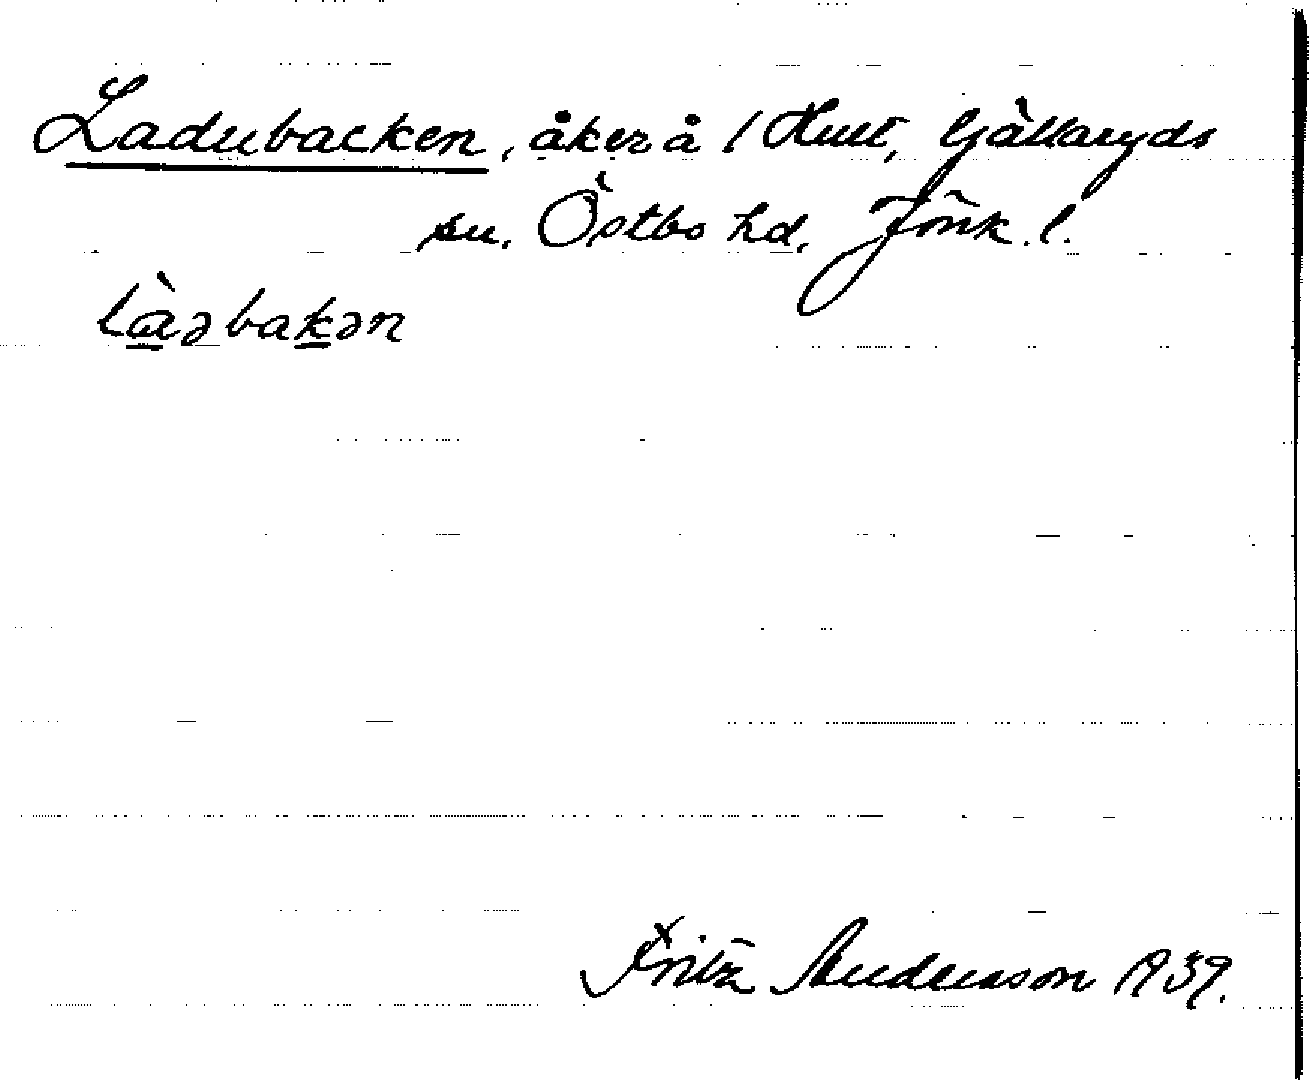 Ladubacken, åker å 1 Hult, Gällaryds
sn. Östbo hd. Jönk. l.
làəbakən
Fritz Andersson 1939.